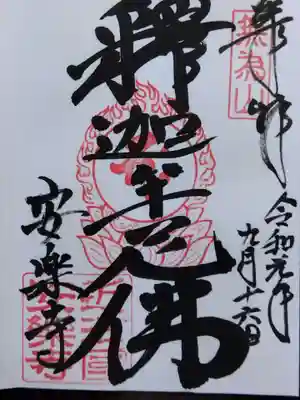 奉拝
無為山
令和元年
九月十六日
釋迦牟尼佛
安楽寺